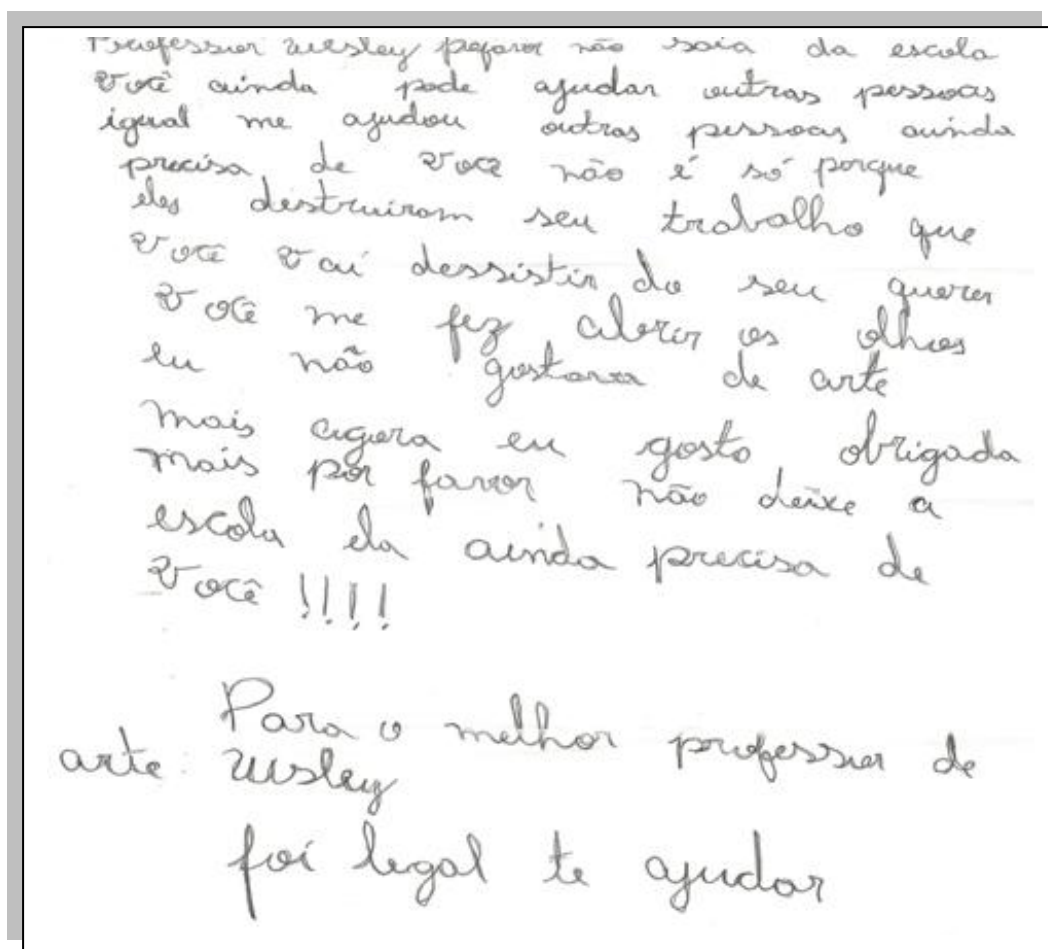 Professor Wesley pofavor não saia da escola
você ainda pode ajudar outras pessoas
igual me ajudou outras pessoas ainda
precisa de você não é só porque
eles destruiram seu trabalho que
você vai dessistir do seu querer
você me fez abrir os olhos
eu não gostava de arte
mais agora eu gosto obrigada
mais por favor não deixe a
escola ela ainda precisa de
você !!!!
Para o melhor professor de
arte: Wesley
foi legal te ajudar